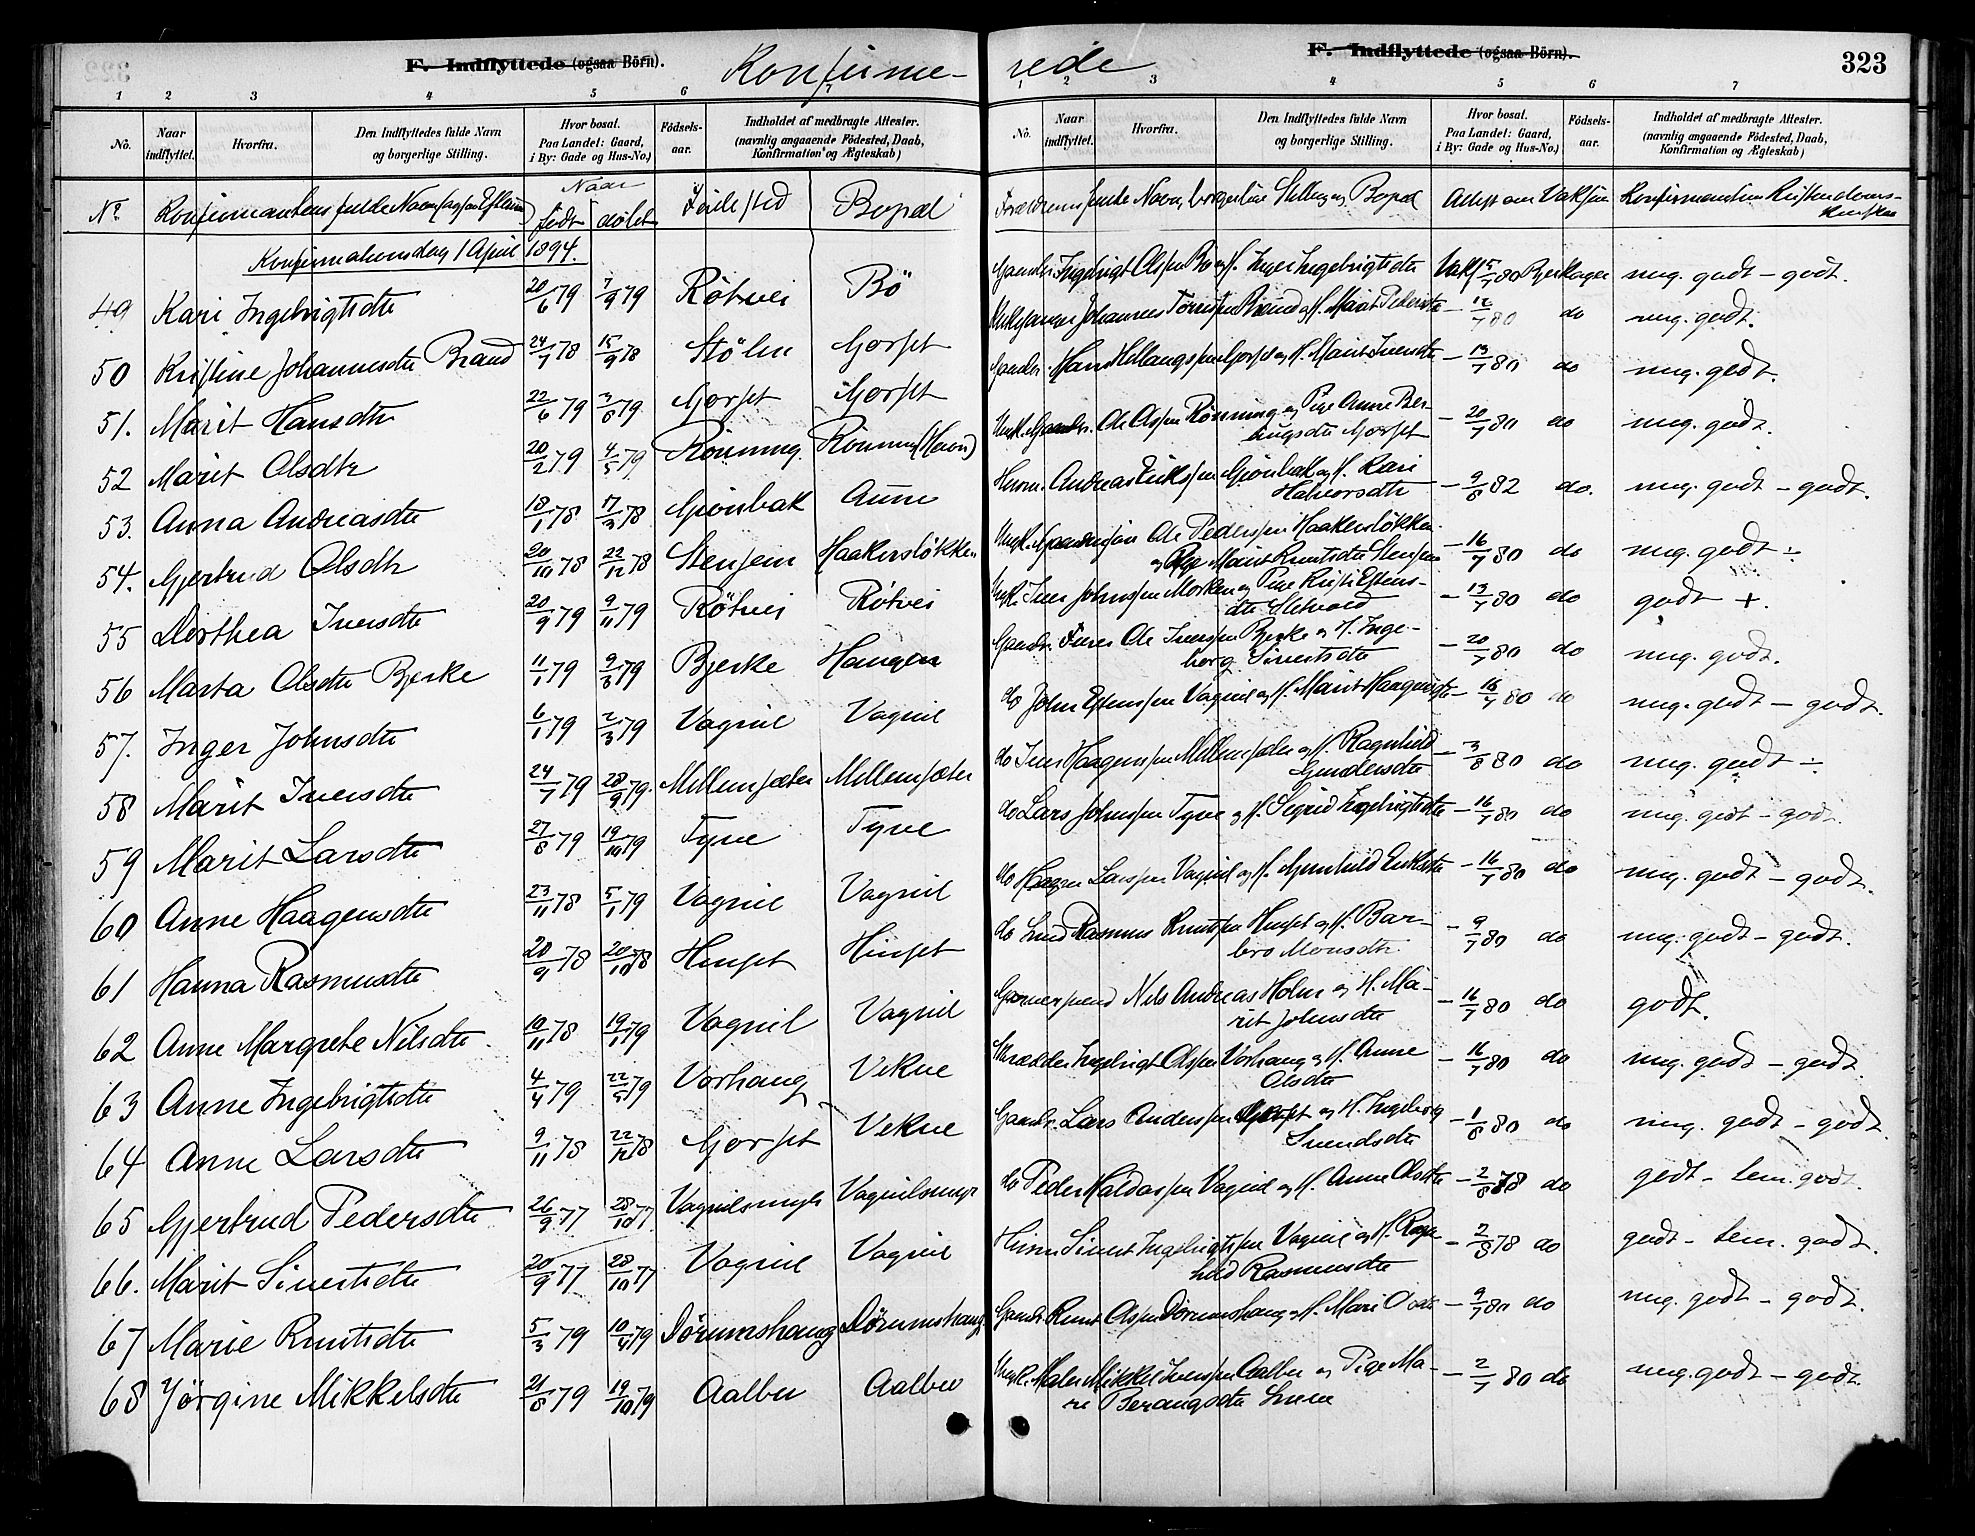 F. Indflyttede (ogsaa Börn).
Konfirme-
rede
F. Indflyttede (ogsaa Börn).
323
1 2 3 4 5 6 7
1 2 3 4 5 6 7
No. Naar indflyttet. Hvorfra. Den Indflyttedes fulde Navn og borgerlige Stilling. Hvor bosat. Paa Landet: Gaard, i By: Gade og Hus-No.) Födsels-aar. Indholdet af medbragte Attester. (navnlig angaaende Födested, Daab, Konfirmation og Ægteskab)
No. Naar indflyttet. Hvorfra. Den Indflyttedes fulde Navn og borgerlige Stilling. Hvor bosat. Paa Landet: Gaard, i By: Gade og Hus-No.) Födsels-aar. Indholdet af medbragte Attester. (navnlig angaaende Födested, Daab, Konfirmation og Ægteskab)
No. Konfirmantens fulde Navn Naar født døbt Fødested Bopæl
Forældrenes fulde Navn, borgerlige Stilling og Bopæl Attest om Vaksine Konfirmandens Kristendoms-kundskab
Konfirmationsdag 1 April 1894.
49 Kari Ingebrigtsdtr 20/6 79 7/9 79 Rötvei Bö
Gaardbr. Ingebrigt Olssen Bö og H. Inger Ingebrigtsdtr Vaks 15/7 80 Bjerkager mg. godt - godt.
50 Kristine Johannesdtr Brand 24/7 78 15/9 78 Stölen Gorset
Johannes Brand og H. Marit Pedersdtr - 12/7 80 do mg. godt.
51. Marit Hansdtr 22/6 79 3/8 79 Gorset Gorset
Gaardbr. Hans Gorset og H. Marit Iversdtr - 13/7 80 do mg. godt.
52 Marit Olsdtr 20/2 79 4/5 79 Rönning Rönning
Ungk. Gaardbr. Ole Olssen Rönning og Pige Anne Ber-
ungsdtr Gorset - 20/7 80 do mg. godt.
53. Anna Andreasdtr 18/1 78 17/3 78 Grönbak Aune
Husm. Andreas Erikssen Grönbak og H. Kari
Halvorsdtr - 9/8 82 do. mg. godt - godt.
54. Gjertrud Olsdtr 20/10 78 22/12 78 Stensem Haakersløkken
Ungk. Ole Pederssen Haakersløkken
og Pige Marit Knutsdtr Stensem - 16/7 80 do mg. godt ÷
55 Dorthea Iversdtr 20/9 79 9/11 79 Rötvei Rötvei
Ungk. Iver Johnssen Morken og Pige Kristi Estens-
dtr - 13/7 80 do godt +.
56 Marta Olsdtr Bjerke 11/1 79 9/3 79 Bjerke Haugen
Gaardbr. Ole Iverssen Bjerke og H. Inge-
borg Sivertsdtr - 20/7 80 do mg. godt.
57. Inger Johnsdtr 6/1 79 2/3 79 Vagnil Vagnil
do John Estenssen Vagnil og H. Marit Haagensdtr - 16/7 80 do mg. godt - godt.
58 Marit Iversdtr 24/7 79 28/9 79. Mellemsæter Mellemsæter
do Iver Haagenssen Mellemsæter og H. Ragnhild
- 3/8 80 do mg. godt ÷
59 Marit Larsdtr 27/8 79 19/10 79 Tyve Tyve
do Lars Johnssen Tyve og H. Sigrid Ingebrigtsdtr - 16/7 80 do mg. godt - godt.
60 Anne Haagensdtr 23/11 78 5/1 79 Vagnil Vagnil
do Haagen Larssen Vagnil og H. Gunhild Eriksdtr - 16/7 80 do mg. godt - godt.
61 Hanna Rasmusdtr 20/9 78 20/10 78 Hinset Hinset
do Rasmus Knutssen Hinset og H. Bar-
bro Monsdtr - 9/7 80 do mg. godt - godt.
62 Anne Margrete Nilsdtr 10/11 78 19/1 79 Vagnil Vagnil
Garversvend Nils Andreas Holm og H. Ma-
rit Johnsdtr - 16/7 80 do godt.
63 Anne Ingebrigtsdtr 4/4 79 22/5 79 Vorhaug Vekve
Skrædder Ingebrigt Olssen Vorhaug og H. Anne
Olsdtr - 16/7 80 do mg. godt - godt
64 Anne Larsdtr 9/11 78 22/12 78 Gorset Vekve
Gaardbr. Lars Anderssen Gorset og H. Ingeborg
Svendsdtr - 1/8 80 do mg. godt - godt.
65 Gjertrud Pedersdtr 26/9 77 28/10 77 Vagnilsmyr Vagnilsmyr
do Peder Haldossen Vagnil og H. Anne Olsdtr - 2/8 78 do godt - tem. godt.
66. Marit Sivertsdtr 20/9 77 28/10 77 Vagnil Vagnil
Husm. Sivert Ingebrigtssen Vagnil og H. Ragn-
hild Rasmusdtr - 2/8 78 do godt - tem. godt.
67 Marie Knutsdtr 5/3 79 10/4 79 Dörumshaug Dörumshaug
Gaardbr. Knut Olssen Dörumshaug og H. Mari Olsdtr - 9/7 80 do mg. godt - godt.
68 Jørgine Mikkelsdtr 21/8 79 19/10 79 Aalbu Aalbu
Ungk. Maler Mikkel Iverssen Aalbu og Pige Ma-
ri Berangsdtr - 2/7 80 do mg. godt - godt.